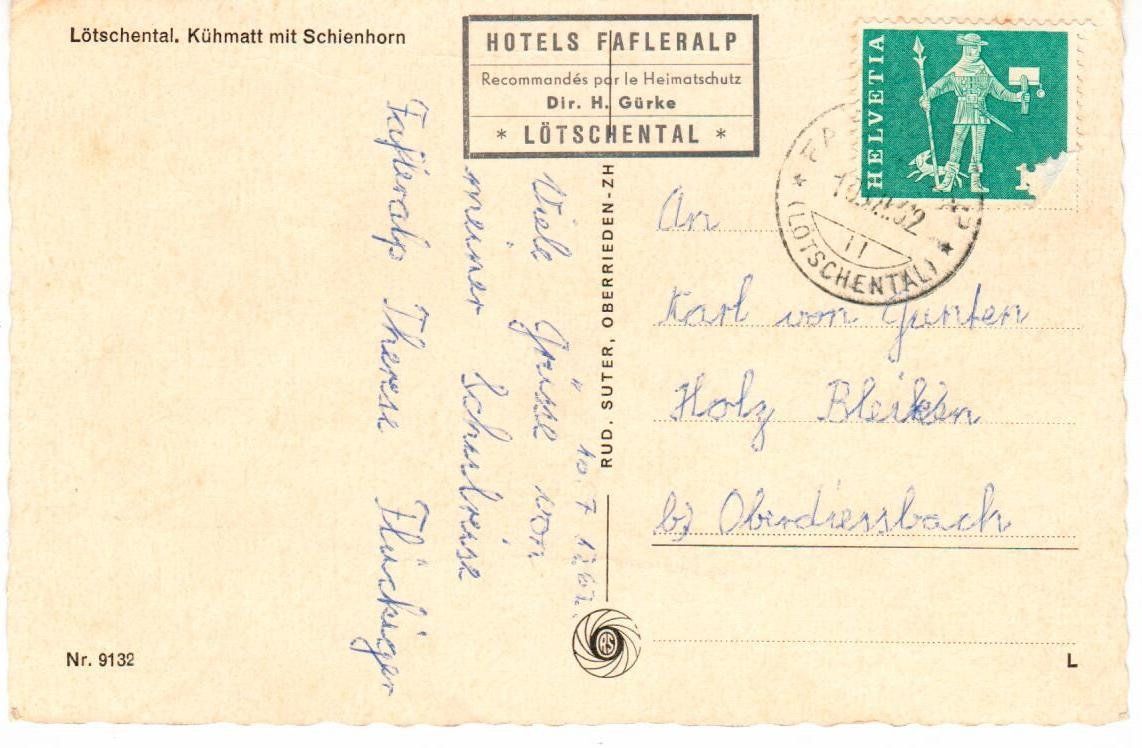 Lötschental. Kühmatt mit Schienhorn
HOTELS FAFLERALP
Recommandés par le Heimatschutz
Dir. H. Gürke
* LÖTSCHENTAL *
HELVETIA
1
(LÖTSCHENTAL)
11
10. 7. 1962.
Viele Grüsse von
meiner Schulreise
Fafleralp Therese Flückiger
RUD. SUTER, OBERRIEDEN-ZH
An
Karl von Gunten
Holz Bleiken
bz Oberdiessbach
RS
Nr. 9132
L